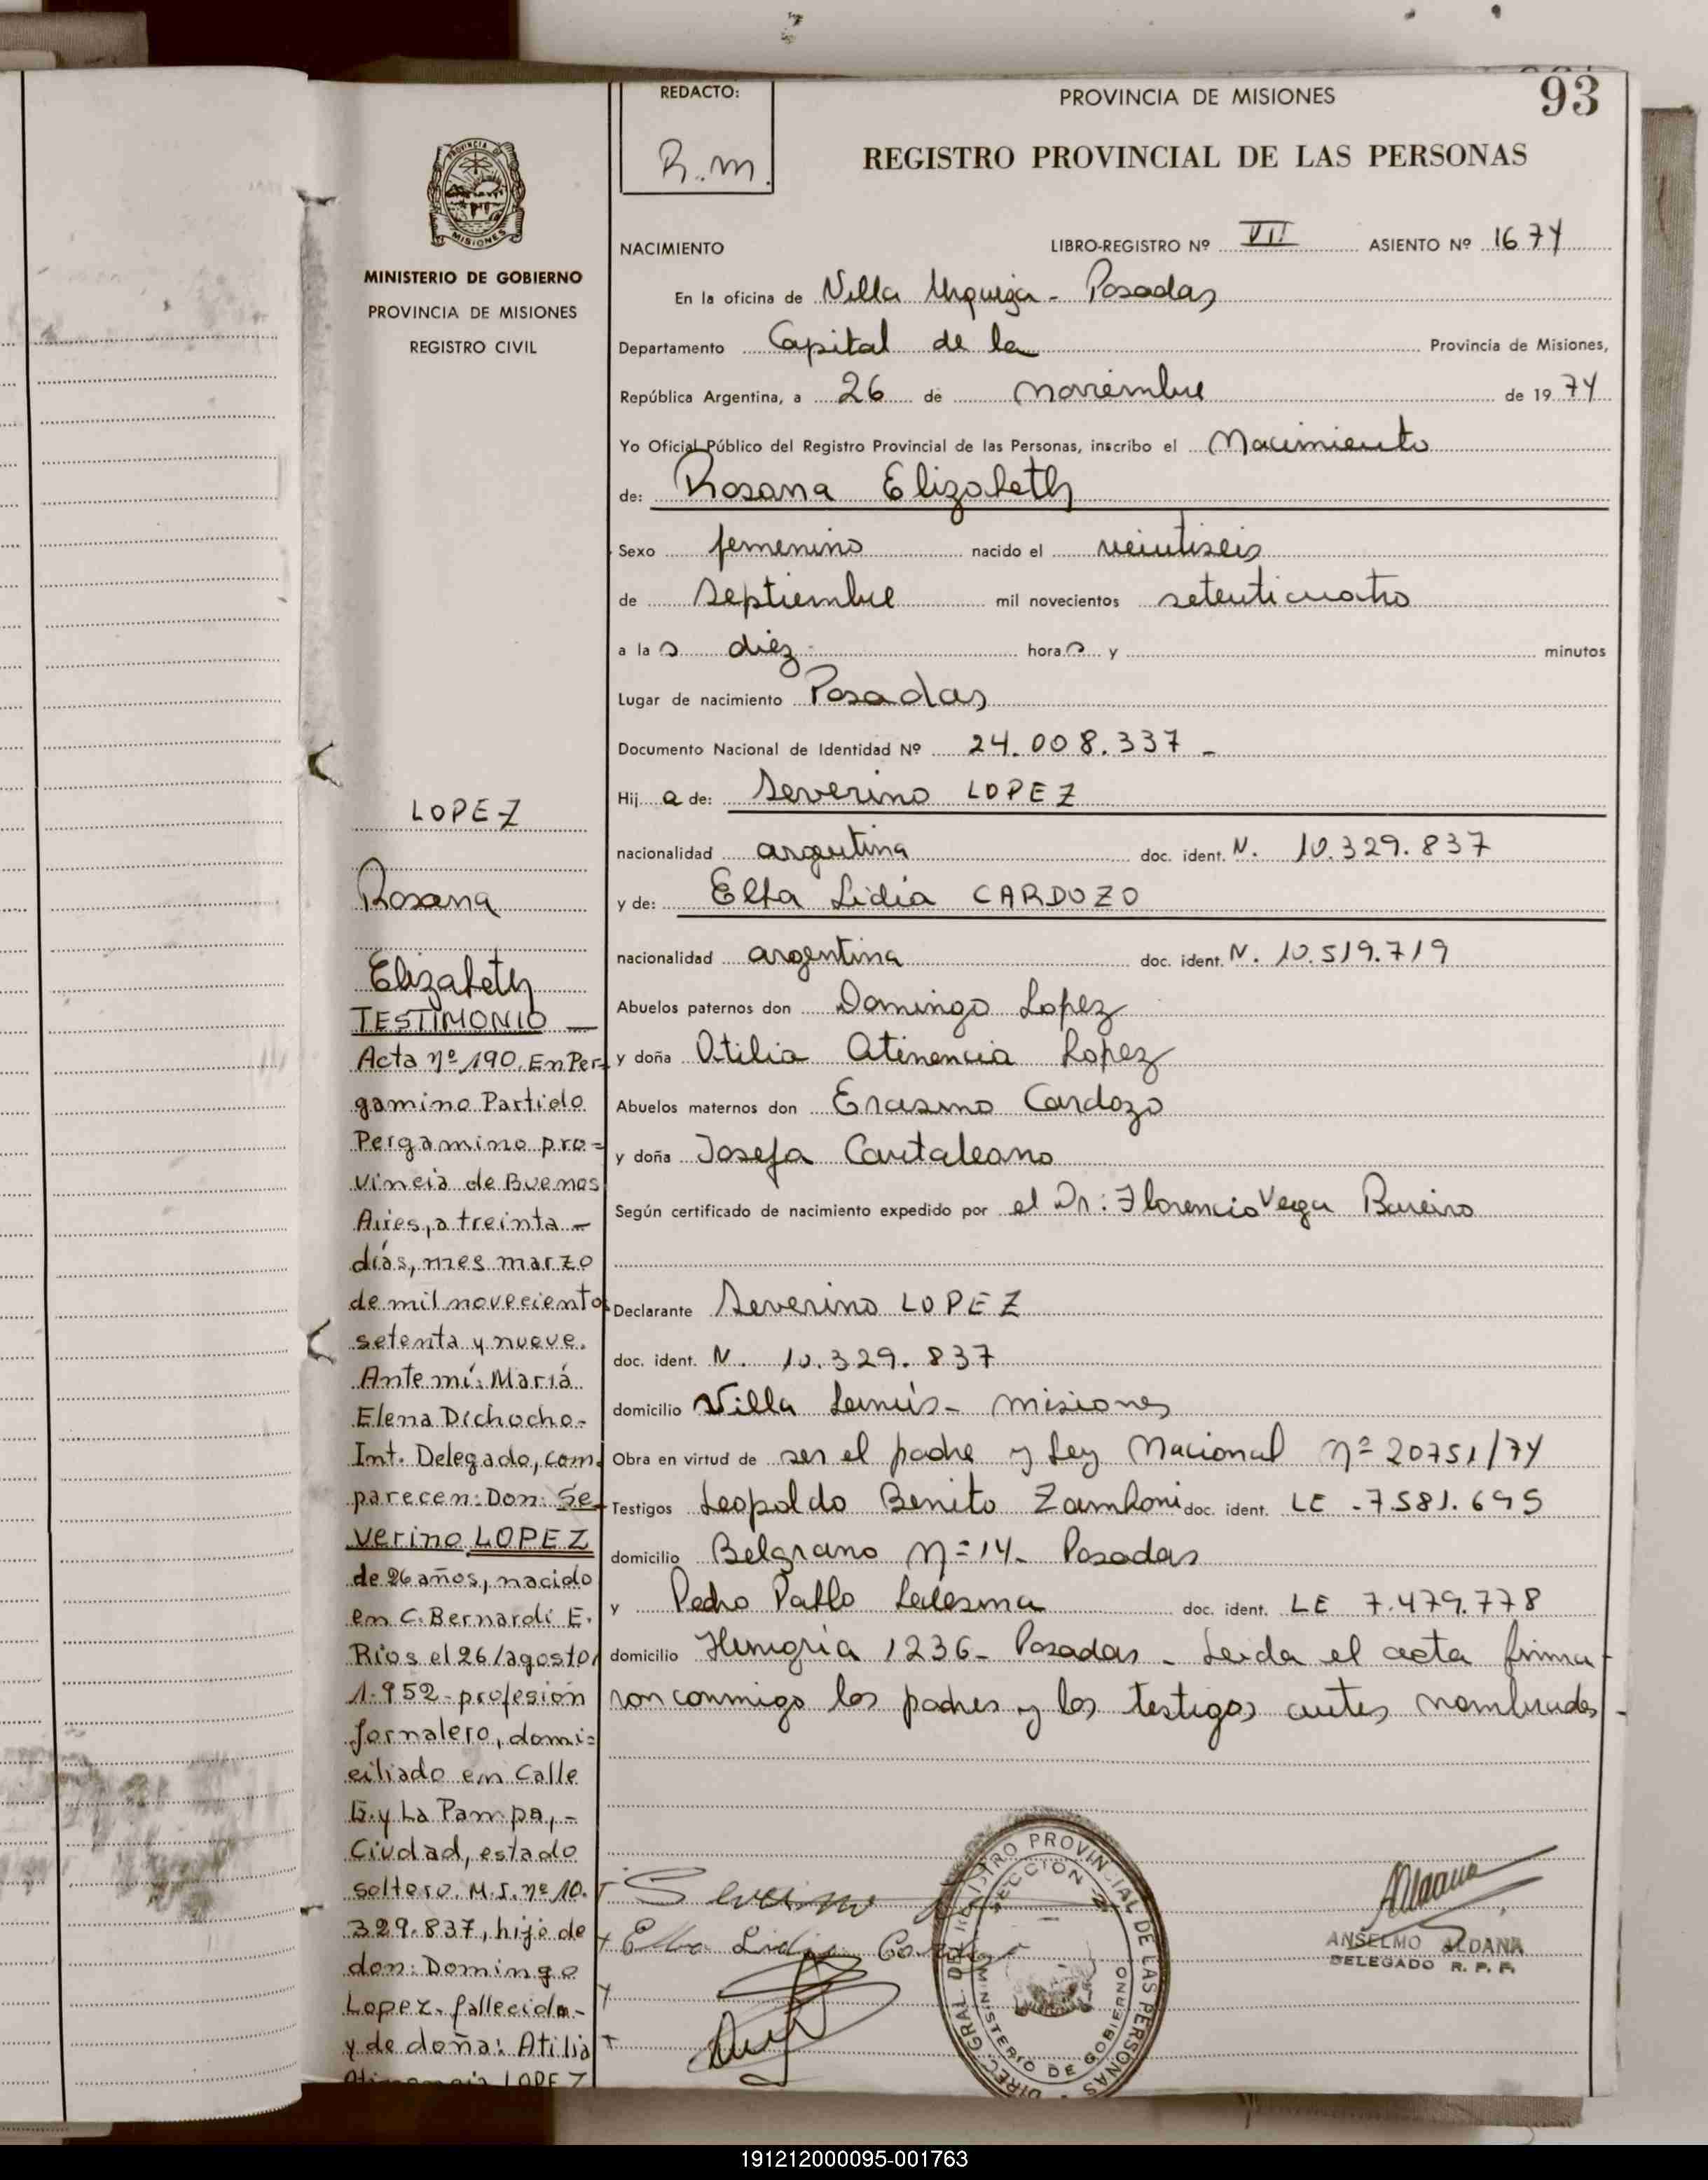 93
REDACTO:
R.m.
PROVINCIA DE MISIONES
REGISTRO PROVINCIAL DE LAS PERSONAS
NACIMIENTO
LIBRO-REGISTRO Nº VII ASIENTO Nº 1674
En la oficina de Villa Urquiza - Posadas
Departamento Capital de la Provincia de Misiones,
República Argentina, a 26 de noviembre de 1974
Yo Oficial Público del Registro Provincial de las Personas, inscribo el Nacimiento
de: Rosana Elizabeth
Sexo femenino nacido el veintiseis
de septiembre mil novecientos setenticuatro
a las diez horas y minutos
Lugar de nacimiento Posadas
Documento Nacional de Identidad Nº 24.008.337 -
Hija de: Severino LOPEZ
nacionalidad argentina doc. ident. N. 10.329.837
y de: Elba Lidia CARDOZO
nacionalidad argentina doc. ident. N. 10.519.719
Abuelos paternos don Domingo Lopez
y doña Otilia Atinencia Lopez
Abuelos maternos don Erasmo Cardozo
y doña Josefa
Según certificado de nacimiento expedido por el Dr: Florencio Vega Bareiro
Declarante Severino LOPEZ
doc. ident. N. 10.329.837
domicilio Villa Lanús - Misiones
Obra en virtud de ser el padre y Ley Nacional nº 20751/74
Testigos Leopoldo Benito Zamboni doc. ident. LE - 7.581.695
domicilio Belgrano Nº 14 - Posadas
y Pedro Pablo Ledesma doc. ident. LE 7.479.778
domicilio Hungría 1236 - Posadas - Leida el acta firma-
ron conmigo los padres y los testigos antes nombrados -
Severino
Elba Lidia Cardozo
DIREC. GRAL. DEL REGISTRO PROVINCIAL DE LAS PERSONAS
SECCION 2
MINISTERIO DE GOBIERNO
Aldana
ANSELMO ALDANA
DELEGADO R. P. P.
PROVINCIA DE
MISIONES
MINISTERIO DE GOBIERNO
PROVINCIA DE MISIONES
REGISTRO CIVIL
LOPEZ
Rosana
Elizabeth
TESTIMONIO —
Acta nº 190. En Per-
gamino Partido
Pergamino pro=
vincia de Buenos
Aires, a treinta -
días, mes marzo
de mil novecientos
setenta y nueve.
Ante mí: Mariá
Elena Dichocho-
Int. Delegado, com-
parecen: Don: Se-
verino LOPEZ
de 26 años, nacido
en C. Bernardi E.
Rios el 26/agosto/
1.952 - profesión
jornalero, domi=
ciliado en Calle
G. y La Pampa, -
Ciudad, estado
soltero. M.I. nº 10.
329.837, hijo de
don: Domingo
Lopez. fallecido -
y de doña: Atilia
LOPEZ
191212000095-001763